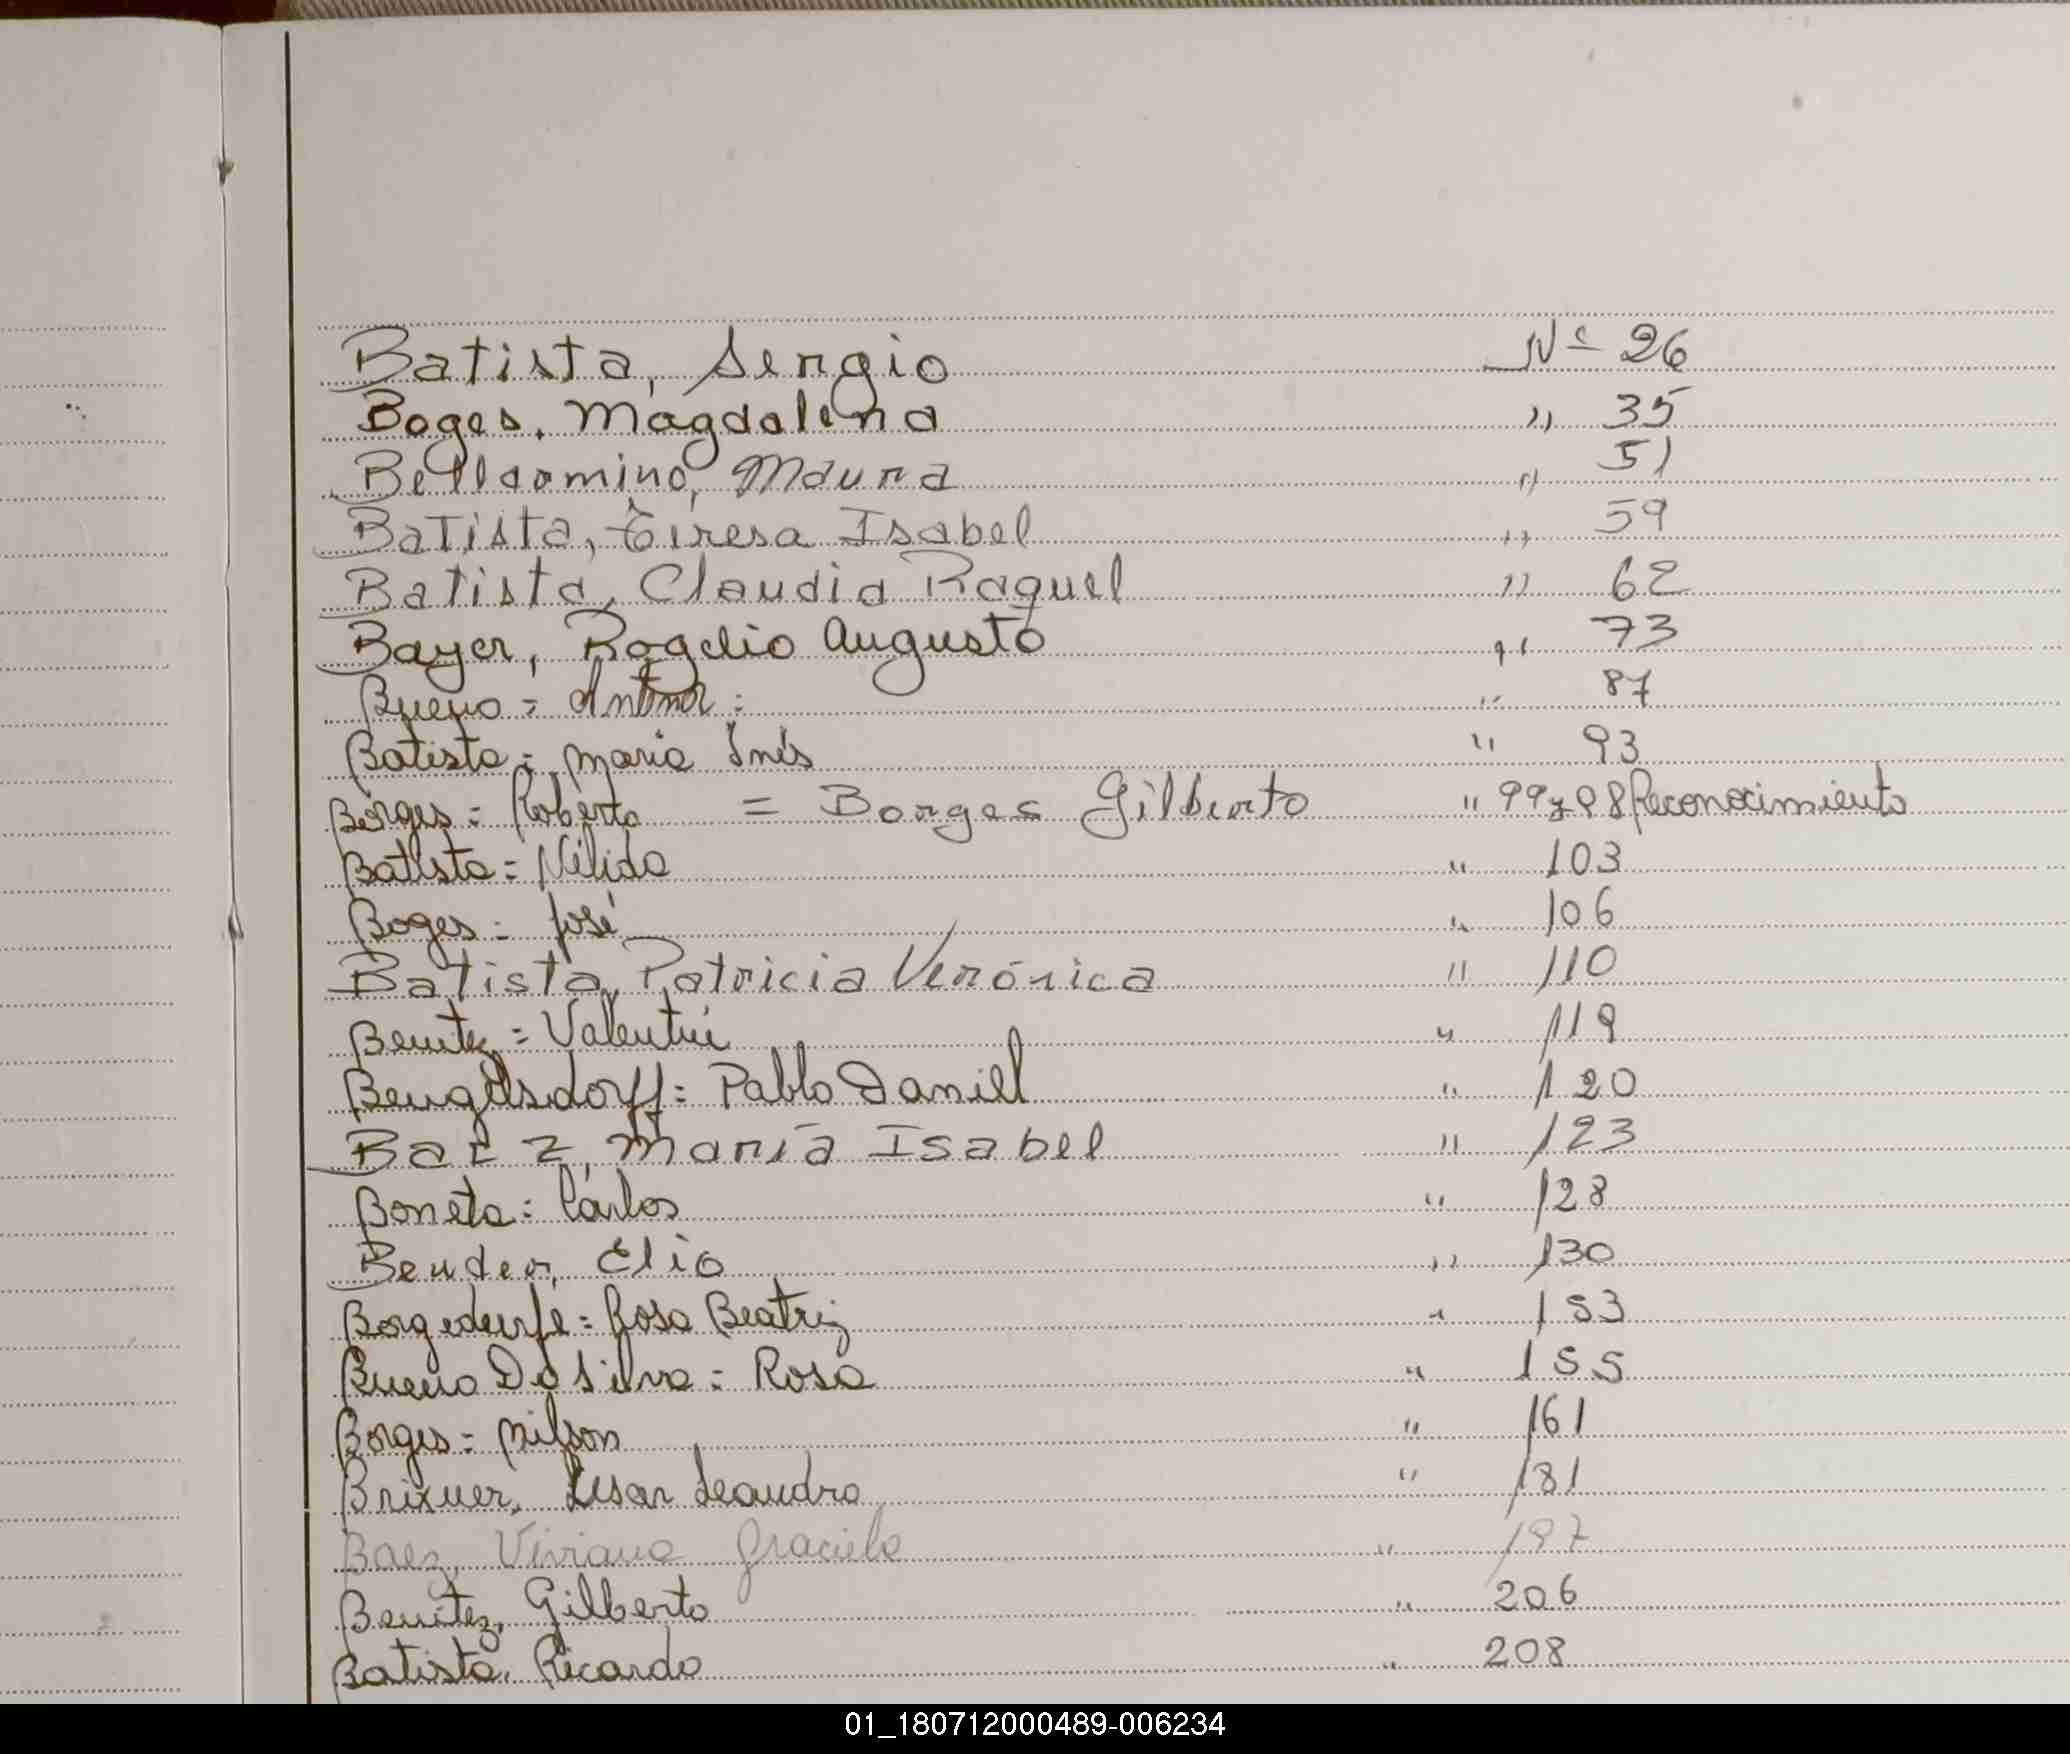 Batista, Sergio Nº 26
Boges, Magdalena " 35
Bellarmino, Maura " 51
Batista, Teresa Isabel " 59
Batista, Claudia Raquel " 62
Bayer, Rogelio Augusto " 73
Bueno = Antenor = " 87
Batista = Maria Inés " 93
Borges = Roberto = Borges Gilberto " 99 y 98 Reconocimiento
Batista = Nélida " 103
Boges = José " 106
Batista, Patricia Verónica " 110
Benitez = Valentín " 119
Beugelsdorff = Pablo Daniel " 120
María Isabel " 123
Boneta = Carlos " 128
Bender, Elio " 130
Rosa Beatriz " 153
Bueno Da Silva = Rosa " 155
Borges = Nilson " 161
Brixner, Leandro " 181
Baez, Viviana Graciela " 197
Benitez, Gilberto " 206
Batista, Ricardo " 208
01_180712000489-006234